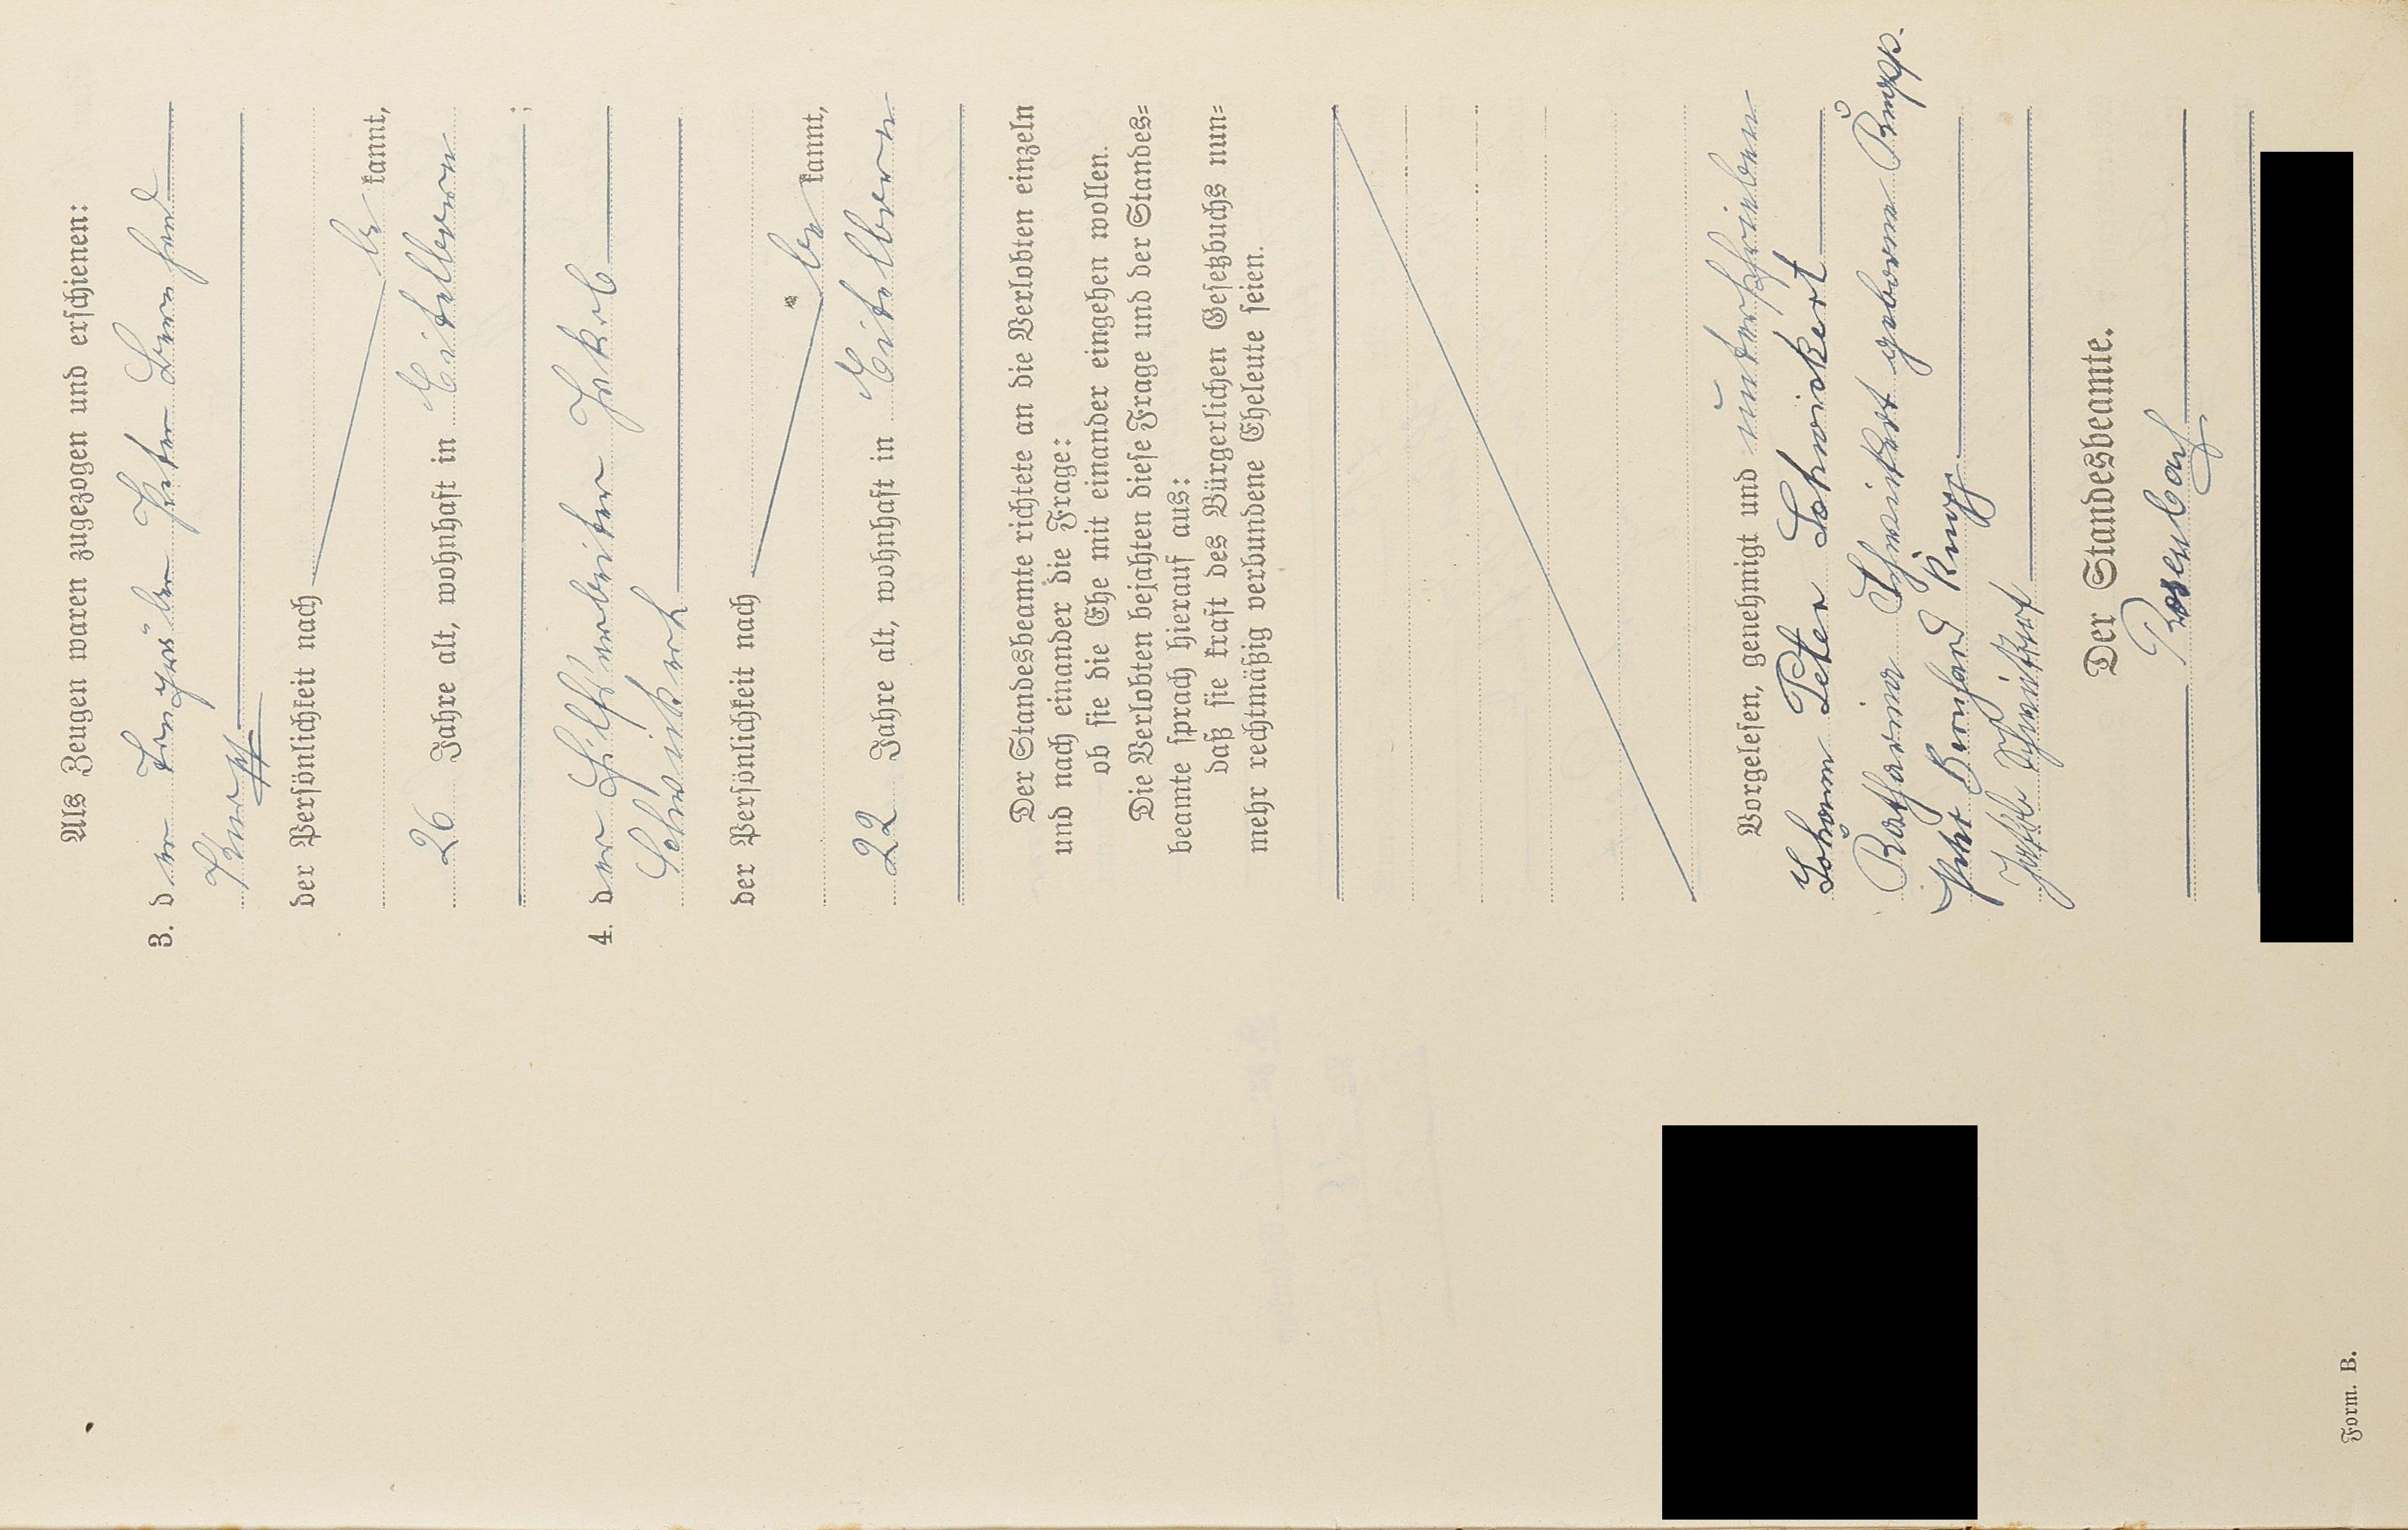 Als Zeugen waren zugezogen und erschienen:
3. der Tagelöhner Peter Bernhard
Knopp
der Persönlichkeit nach
be kannt,
26 Jahre alt, wohnhaft in Eitelborn
;
4. der Hilfsarbeiter Jakob
Schwickert
der Persönlichkeit nach
be kannt,
22 Jahre alt, wohnhaft in Eitelborn
Der Standesbeamte richtete an die Verlobten einzeln
und nach einander die Frage:
ob sie die Ehe mit einander eingehen wollen.
Die Verlobten bejahten diese Frage und der Standes=
beamte sprach hierauf aus:
daß sie kraft des Bürgerlichen Gesetzbuchs nun=
mehr rechtmäßig verbundene Eheleute seien.
Vorgelesen, genehmigt und unterschrieben
Johann Peter Schwickert
Katharina Schwickert geborene
Peter Bernhard Knopp
Jakob Schwickert
Der Standesbeamte.
Rosenbach
Form. B.